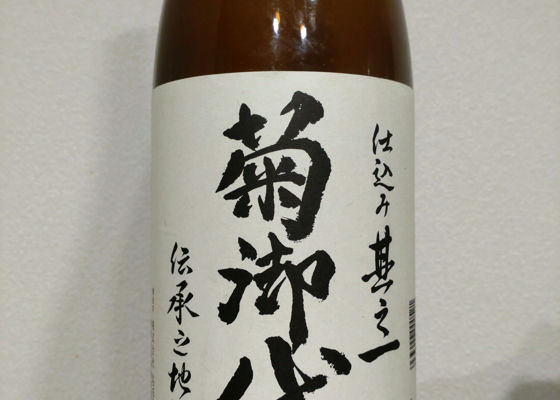 仕込み其之一
菊御代
伝承之地